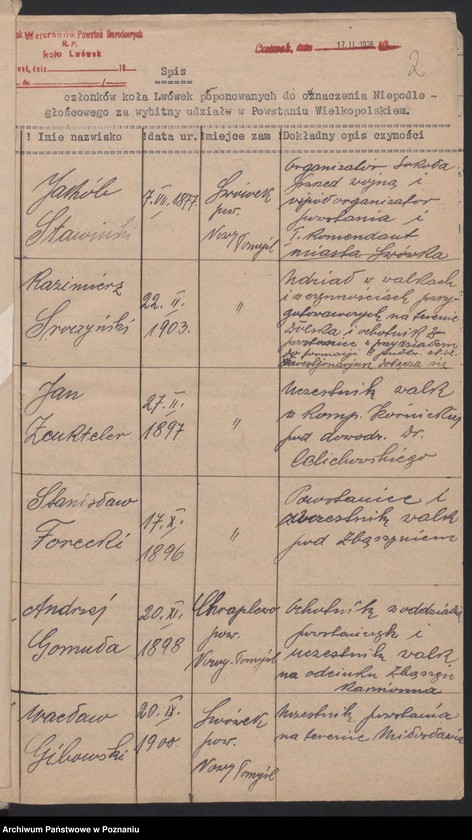 Weteranów Powstań Narodowych
R.P.
koło Lwówek
Lwówek, dnia 17.II.1938
2
Spis
członków koła Lwówek poponowanych do oznaczenia Niepodle -
głościowego za wybitny udziałw w Powstaniu Wielkopolskiem.
Imie nazwisko data ur. miejsce zam Dokładny opis czyności
Jakób
Sławiński
7.VII.1877
Lwówek
pow.
Nowy Tomyśl
Organizator Sokoła
przed wojną i
współorganizator
powstania i
I. Komendant
miasta Lwówka
Kazimierz
Sroczyński
22. II.
1903.
"
Udział w walkach
i w czynnościach przy-
gotowawczych na terenie
i ochotnik
powstaniec z przydziałem
do formacji
Jan
27. II.
1897
"
Uczestnik walk
w Komp. Kórnickiej
pod dowodz. Dr.
Celichowskiego
Stanisław
Forecki
17. XI.
1896
"
Powstaniec i
uczestnik walk
pod Zbąszyniem
Andrzej
Gomuła
20. XI.
1898
Chraplewo
pow.
Nowy-Tomyśl
Ochotnik z oddziału
powstańczych i
uczestnik walk
na odcinku Zbąszyń
Kamionna
Wacław
Gibowski
20. IX.
1900
Lwówek
pow.
Nowy Tomyśl
Uczestnik powstania
na terenie Miłosławia
Archiwum Państwowe w Poznaniu